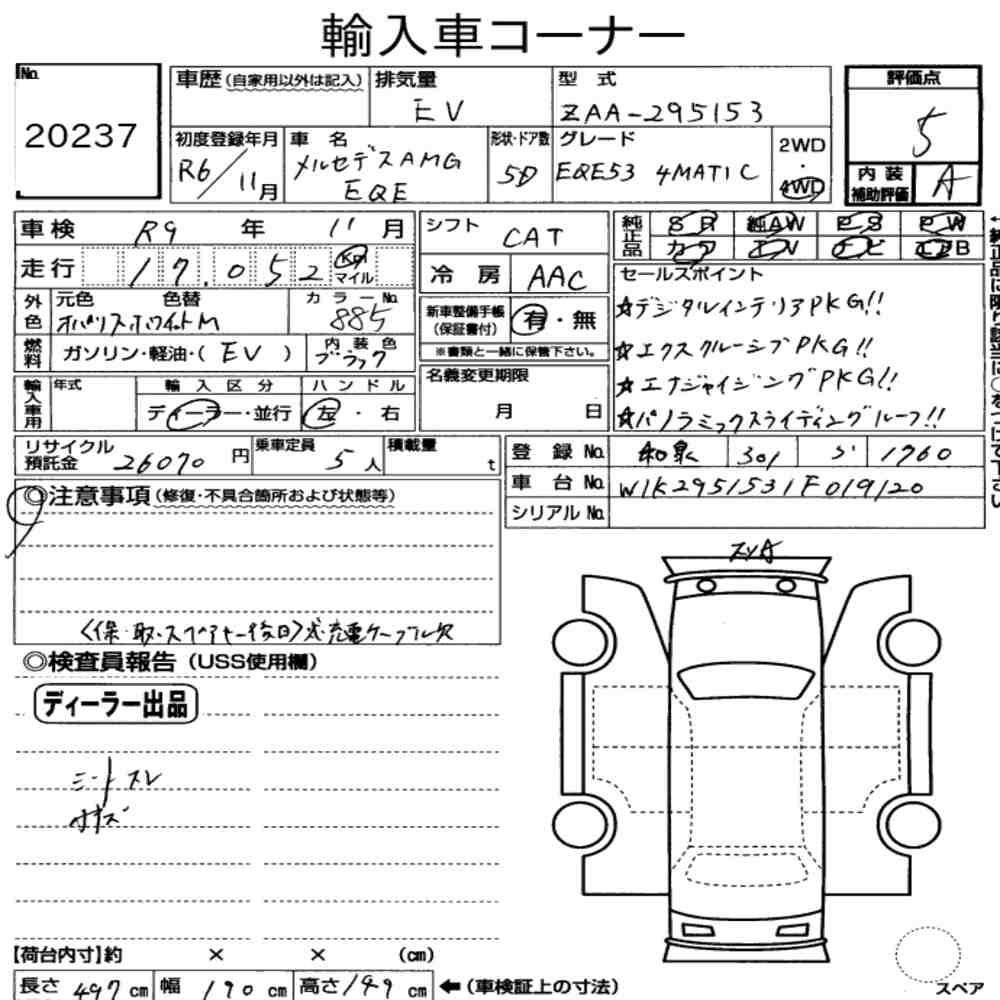 輸入車コーナー
No. 20237
車歴(自家用以外は記入) 排気量 EV 型式 ZAA-295153 評価点 5
初度登録年月 R6/11月 車名 メルセデスAMG EQE 形状・ドア数 5D グレード EQE53 4MATIC 2WD・4WD 内装補助評価 A
車検 R9年 11月 シフト CAT 純正品 SR 純AW PS PW
走行 17,052 Km マイル 冷房 AAC カワ TV ナビ エアB
外色 元色 色替 オパリスホワイトM カラーNo. 885 新車整備手帳(保証書付) 有・無 ※書類と一緒に保管下さい。
燃料 ガソリン・軽油・(EV) 内装色 ブラック
輸入車用 年式 輸入区分 ディーラー・並行 ハンドル 左・右 名義変更期限 月 日
セールスポイント
☆デジタルインテリアPKG!!
☆エクスクルーシブPKG!!
☆エナジャイジングPKG!!
☆パノラミックスライディングルーフ!!
リサイクル預託金 26070円 乗車定員 5人 積載量 t
登録No. 和泉 301 1760
車台No. W1K2951531F019120
シリアルNo.
◎注意事項(修復・不具合箇所および状態等)
<保・取・スペアキー後日>※充電ケーブル欠
◎検査員報告(USS使用欄)
ディーラー出品
シートスレ
スペア
【荷台内寸】約 × × (cm)
長さ 497cm 幅 190cm 高さ 149cm ←(車検証上の寸法)